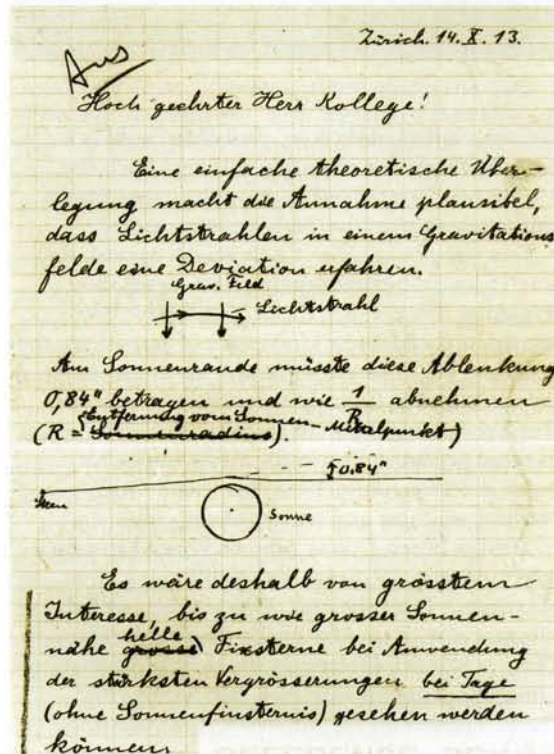 Zürich. 14. X. 13.
Aus
Hoch geehrter Herr Kollege!
Eine einfache theoretische Über-
legung macht die Annahme plausibel,
dass Lichtstrahlen in einem Gravitations
felde eine Deviation erfahren.
Grav. Feld
Lichtstrahl
Am Sonnenrande müsste diese Ablenkung
0,84" betragen und wie 1/R abnehmen
Entfernung vom Sonnen-Mittelpunkt)
(R = Sonnenradius).
0.84"
Stern
Sonne
Es wäre deshalb von grösstem
Interesse, bis zu wie grosser Sonnen-
helle
nähe grosse Fixsterne bei Anwendung
der stärksten Vergrösserungen bei Tage
(ohne Sonnenfinsternis) gesehen werden
können